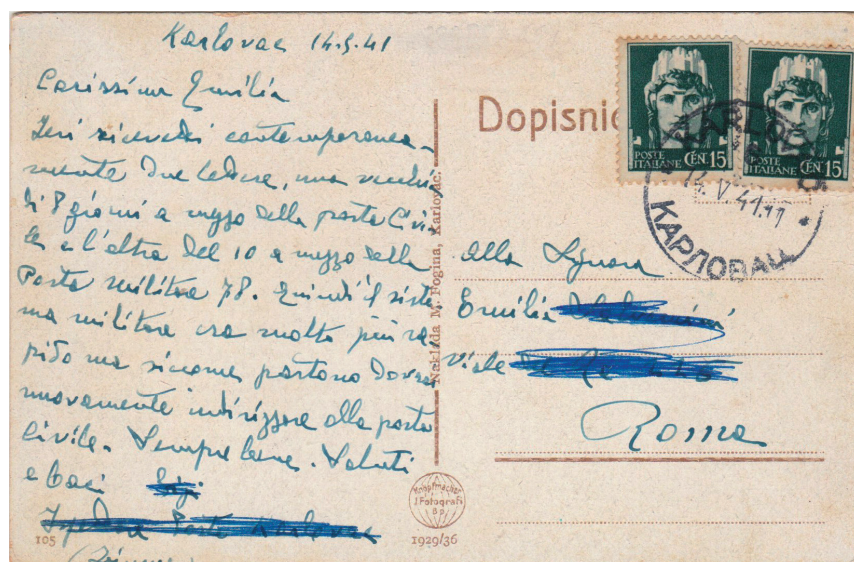 Karlovac 14.5.41
Carissima Emilia
Ieri ricevetti contemporanea-
mente due lettere, una vecchia
di 8 giorni a mezzo della posta Civi-
le e l'altra del 10 a mezzo della
Posta militare 78. Quindi il siste
ma militare era molto più ra
pido ma siccome partono dovrai
nuovamente indirizzare alla posta
Civile. Sempre bene. Saluti
e baci
105
Naklada M. Fogina, Karlovac.
Knopfmacher
i Fotografi
1929/36
Dopisnic
POSTE
ITALIANE CEN. 15
POSTE
ITALIANE CEN. 15
KARLOVAC
14. V. 41. 11
КАРЛОВАЦ
alla Signora
Emilia
Viale
Roma